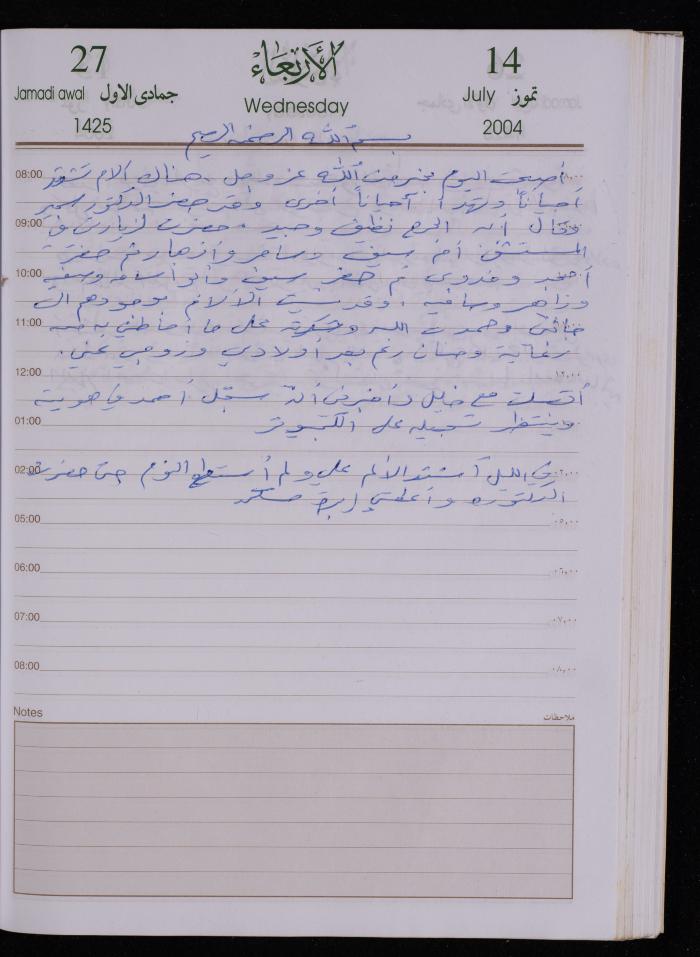 27
Jamadi awal جمادى الاول
1425
الأربعاء
Wednesday
14
July تموز
2004
بسم الله الرحمن الرحيم
08:00 أصبحت اليوم بخير من الله عز وجل . هناك آلام تشتد
أحياناً وتهدأ أحياناً أخرى وقد حضر الدكتور سمير
09:00 وقال أن الجرح نظيف وجيد . حضرت لزيارتي في
المستشفى أم سيف وسامر وأزهار ثم حضرت
10:00 أحمد وفدوى ثم حضر سيف وأبو أسامة وسيف
وزاهر وسامية . وقد نسيت الآلام بوجودهم الى
11:00 جانبي وحمدت الله وشكرته على ما أحاطني به من
رعاية وحنان رغم بعد أولادي وزوجي عني .
12:00
أتصلت مع خليل وأخبرني أنه سجل أحمد في هويته
01:00 وينتظر تسجيله على الكمبيوتر
02:00 في الليل أشتد الألم علي ولم أستطع النوم حتى حضرت
الدكتورة وأعطتني إبرة مسكن
05:00 ٠٥:٠٠
06:00 ٠٦:٠٠
07:00 ٠٧:٠٠
08:00 ٠٨:٠٠
Notes ملاحظات